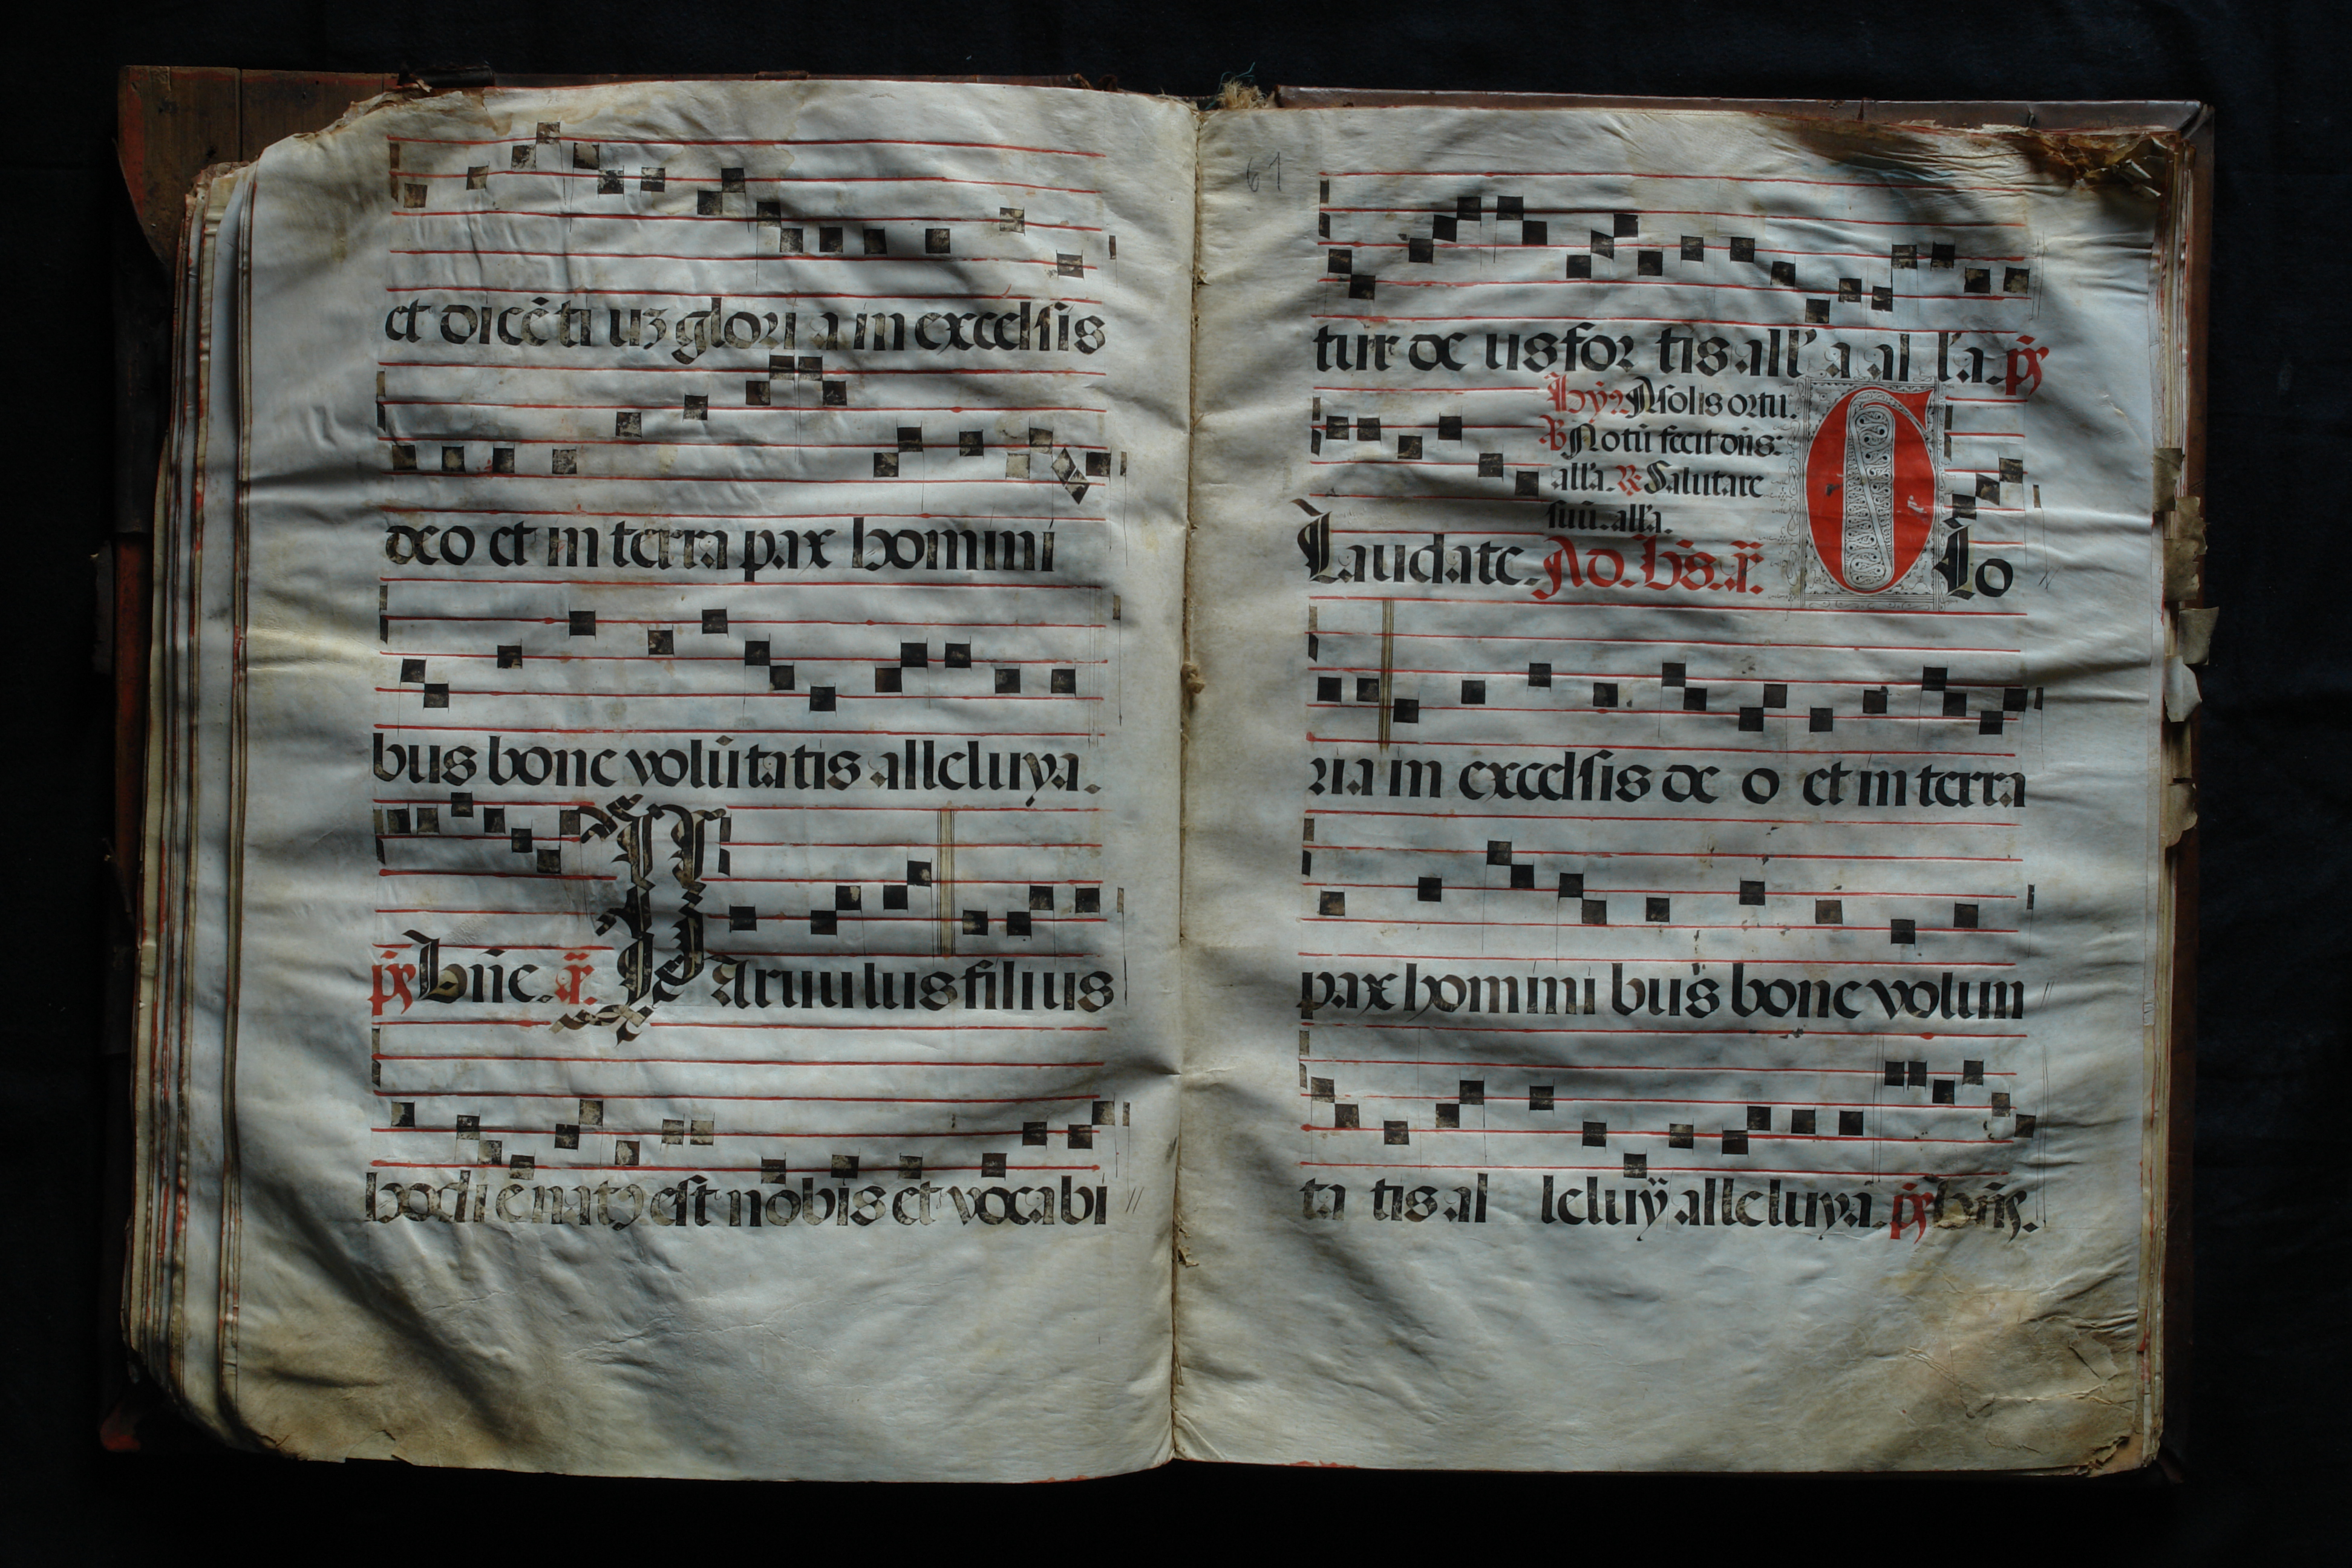 et dicētiuȝ gloria in excelsis
deo et in terra pax homini
bus bone volūtatis alleluya.
p̄s Bn̄e. a⁊. PAruulus filius
hodie natꝰ est nobis et vocabi
61
tur deus fortis all'a all'a. p̄s
hȳ⁊ A solis ortu.
℣ Notū fecit dn̄s:
all'a. ℟ Salutare
suū. all'a.
Laudate. Ad. bn̄s. a⁊. GLo
ria in excelsis deo et in terra
pax hominibus bone volun
tatis alleluȳ alleluya. p̄s Bn̄s.